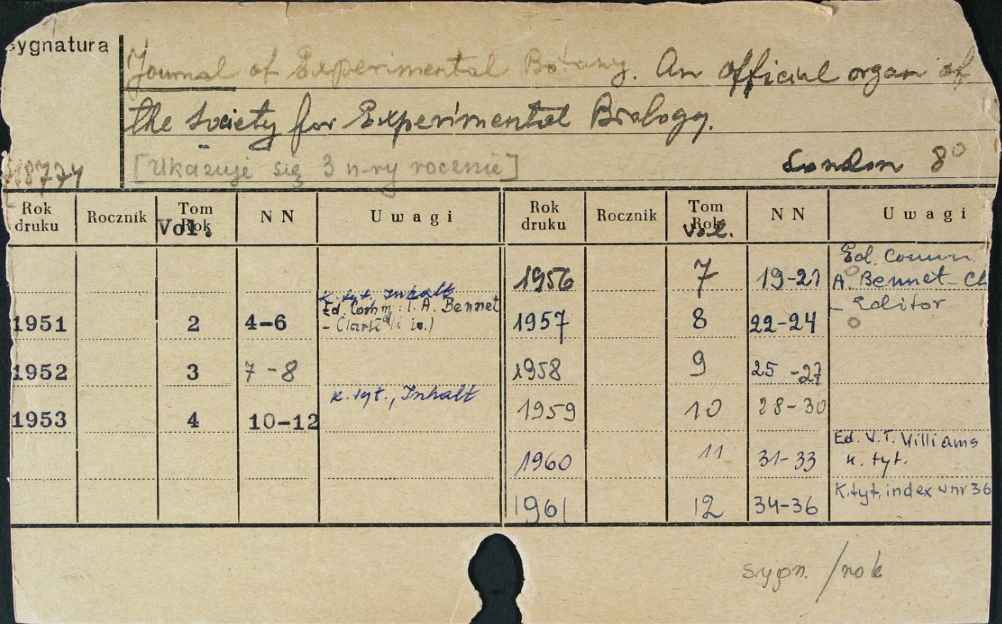 sygnatura
Journal of Experimental Botany. An official organ of
the Society for Experimental Biology.
[Ukazuje się 3 n-ry rocznie]
London 8°
Rok druku Rocznik Tom Rok Vol. NN Uwagi Rok druku Rocznik Tom Rok vol. NN Uwagi
1956 7 19-21 Ed. Comm.
A. Bennet-Cl
- Editor
K. tyt. Inhalt
Ed. Comm. : T. A. Bennet
1951 2 4-6
1957 8 22-24
1952 3 7-8
1958 9 25-27
K. tyt., Inhalt
1953 4 10-12
1959 10 28-30
1960 11 31-33 Ed. W.T. Williams
K. tyt.
1961 12 34-36 K.tyt. index w nr 36
sygn. /rok